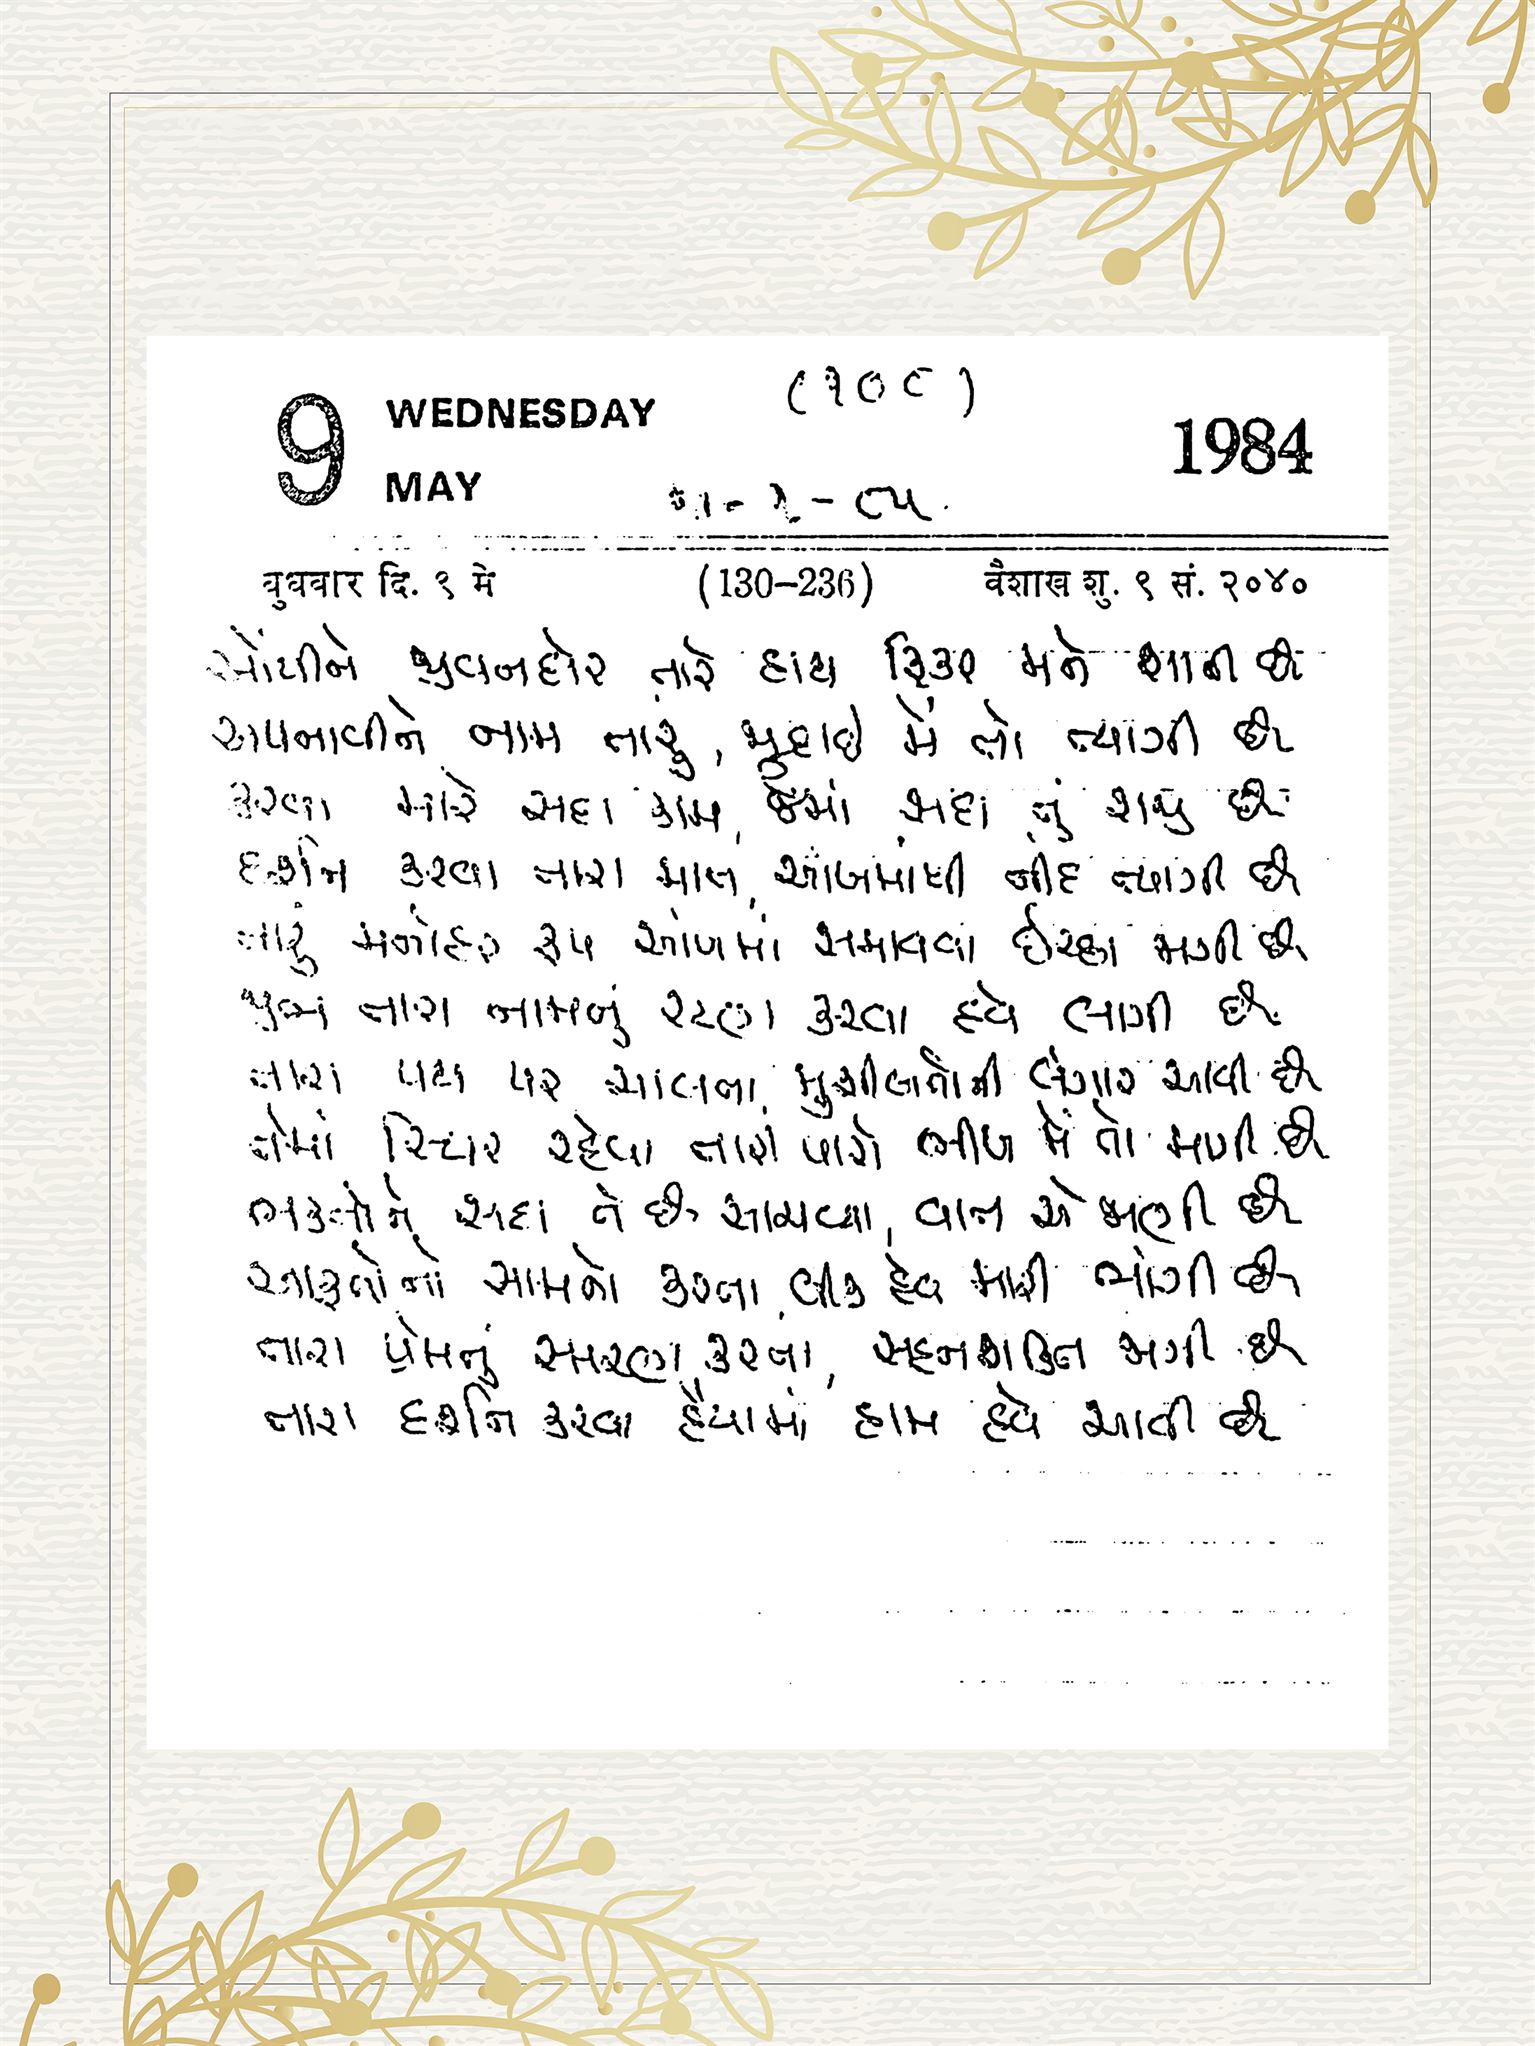 9 WEDNESDAY (૧૦૮)
MAY 1984
૨ - ૮૫
बुधवार दि. ९ मे (130–236) वैशाख शु. ९ सं. २०४०
સોંપીને જીવનદોર તારે હાથ ફિકર મને શાની છે
અપનાવીને નામ તારું, જુદાઈ મેં તો ત્યાગી છે
કરવા મારે સદા કામ, જેમાં સદા તું રાજી છે
દર્શન કરવા તારા માત, આંખમાંથી નીંદ ત્યાગી છે
તારું મનોહર રૂપ આંખમાં સમાવવા ઈચ્છા જાગી છે
જીભ તારા નામનું રટણ કરવા હવે લાગી છે
તારા પથ પર ચાલતા, મુશીબતોની લંગાર આવી છે
તેમાં સ્થિર રહેવા તારી પાસે ભીખ મેં તો માગી છે
ભક્તોને સદા તેં છે સાચવ્યા, વાત એ જાણી છે
આફતોનો સામનો કરતા, બીક હવે મારી ભાંગી છે
તારા પ્રેમનું સ્મરણ કરતા, સહનશક્તિ જાગી છે
તારા દર્શન કરવા હૈયામાં હામ હવે આવી છે